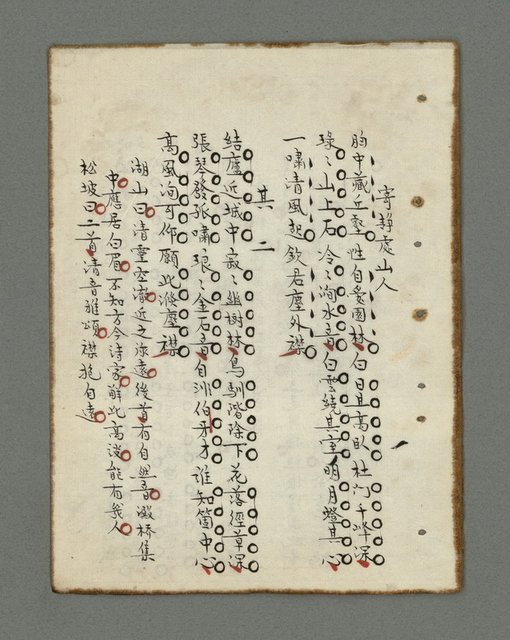 寄静處山人
胸中藏丘壑性自愛園林白日且高臥杜門千峰深
琅〻山上石冷〻澗水音白雲繞其室明月燈其心
一嘯清風起欽君塵外襟
其二
結廬近城中寂〻幽樹林鳥馴階除下花落徑草深
張琴發孤嘯琅〻金石音自非伯牙才誰知箇中心
高風洵可仰願此滌塵襟
湖山曰清靈空澈近之淡遠後首有自然音激桥集
中應居白眉不知方今詩家解此高淡能有幾人
松坡曰二首清音雅頌襟抱自遠